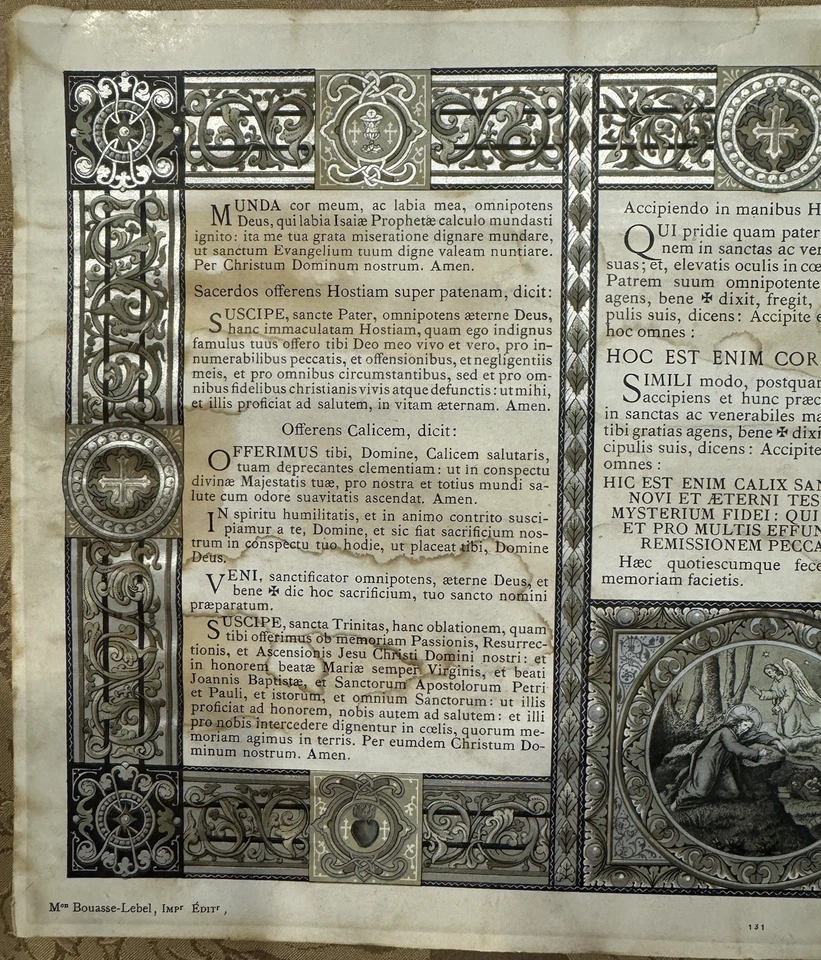 MUNDA cor meum, ac labia mea, omnipotens
Deus, qui labia Isaiæ Prophetæ calculo mundasti
ignito: ita me tua grata miseratione dignare mundare,
ut sanctum Evangelium tuum digne valeam nuntiare.
Per Christum Dominum nostrum. Amen.
Sacerdos offerens Hostiam super patenam, dicit:
SUSCIPE, sancte Pater, omnipotens æterne Deus,
hanc immaculatam Hostiam, quam ego indignus
famulus tuus offero tibi Deo meo vivo et vero, pro in-
numerabilibus peccatis, et offensionibus, et negligentiis
meis, et pro omnibus circumstantibus, sed et pro om-
nibus fidelibus christianis vivis atque defunctis: ut mihi,
et illis proficiat ad salutem, in vitam æternam. Amen.
Offerens Calicem, dicit:
OFFERIMUS tibi, Domine, Calicem salutaris,
tuam deprecantes clementiam: ut in conspectu
divinæ Majestatis tuæ, pro nostra et totius mundi sa-
lute cum odore suavitatis ascendat. Amen.
IN spiritu humilitatis, et in animo contrito susci-
piamur a te, Domine, et sic fiat sacrificium nos-
trum in conspectu tuo hodie, ut placeat tibi, Domine
Deus.
VENI, sanctificator omnipotens, æterne Deus, et
bene ✠ dic hoc sacrificium, tuo sancto nomini
præparatum.
SUSCIPE, sancta Trinitas, hanc oblationem, quam
tibi offerimus ob memoriam Passionis, Resurrec-
tionis, et Ascensionis Jesu Christi Domini nostri: et
in honorem beatæ Mariæ semper Virginis, et beati
Joannis Baptistæ, et Sanctorum Apostolorum Petri
et Pauli, et istorum, et omnium Sanctorum: ut illis
proficiat ad honorem, nobis autem ad salutem: et illi
pro nobis intercedere dignentur in cœlis, quorum me-
moriam agimus in terris. Per eumdem Christum Do-
minum nostrum. Amen.
Accipiendo in manibus H
QUI pridie quam pater
nem in sanctas ac ver
suas; et, elevatis oculis in cœ
Patrem suum omnipotente
agens, bene ✠ dixit, fregit,
pulis suis, dicens: Accipite e
hoc omnes:
HOC EST ENIM COR
SIMILI modo, postquam
accipiens et hunc præc
in sanctas ac venerabiles ma
tibi gratias agens, bene ✠ dixi
cipulis suis, dicens: Accipite
omnes:
HIC EST ENIM CALIX SAN
NOVI ET ÆTERNI TES
MYSTERIUM FIDEI: QUI
ET PRO MULTIS EFFUN
REMISSIONEM PECCA
Hæc quotiescumque fece
memoriam facietis.
Mon Bouasse-Lebel, Impr Éditr,
131